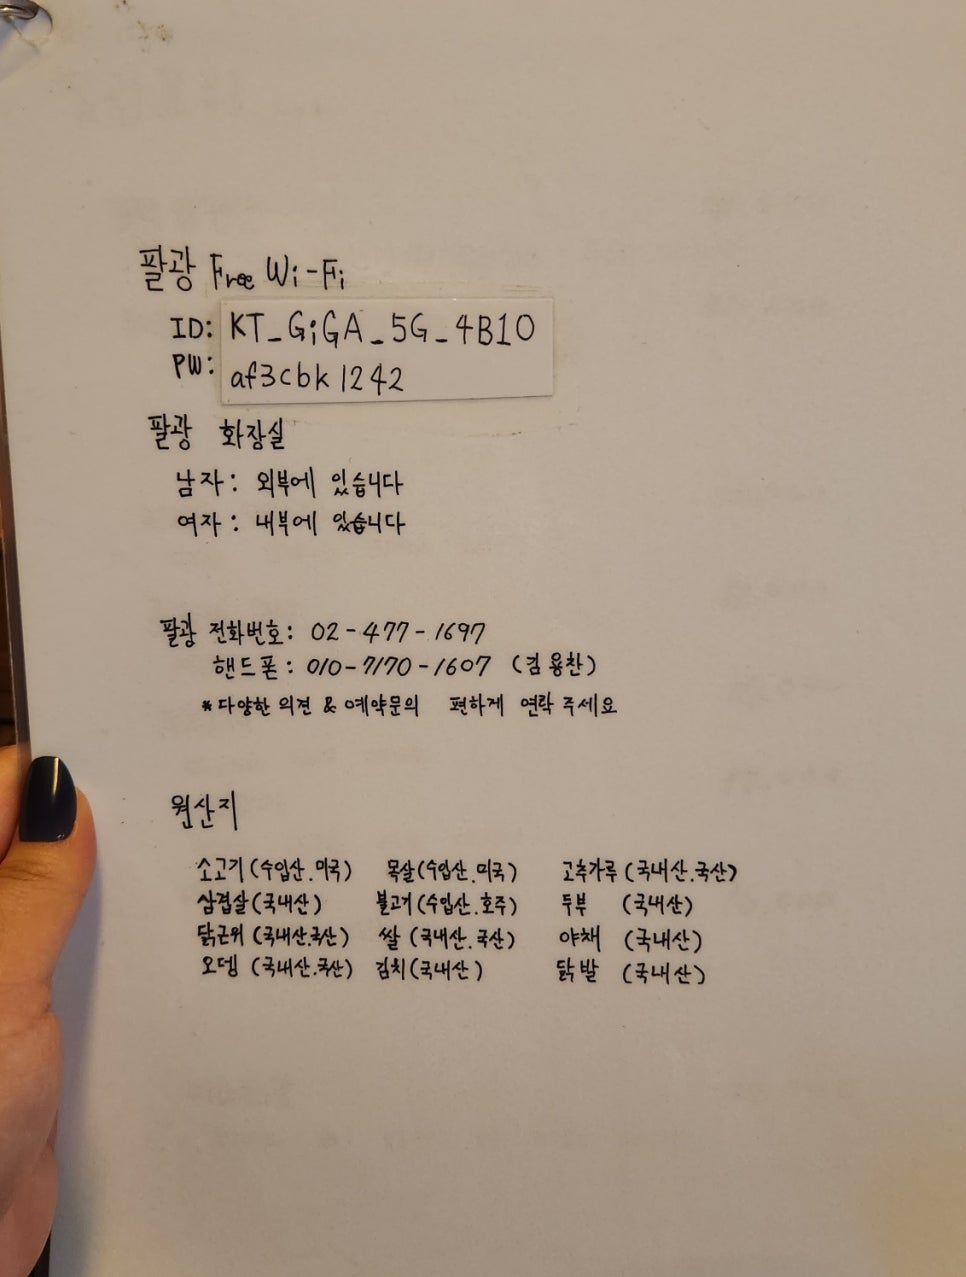 팔광 Free Wi-Fi
ID: KT_GiGA_5G_4B10
PW: af3cbk1242
팔광 화장실
남자: 외부에 있습니다
여자: 내부에 있습니다
팔광 전화번호: 02-477-1697
핸드폰: 010-7170-1607 (김용찬)
*다양한 의견 & 예약문의 편하게 연락 주세요
원산지
소고기(수입산.미국) 목살(수입산.미국) 고추가루(국내산.국산)
삼겹살(국내산) 불고기(수입산.호주) 두부 (국내산)
닭근위(국내산.국산) 쌀(국내산.국산) 야채 (국내산)
오뎅 (국내산.국산) 김치(국내산) 닭발 (국내산)